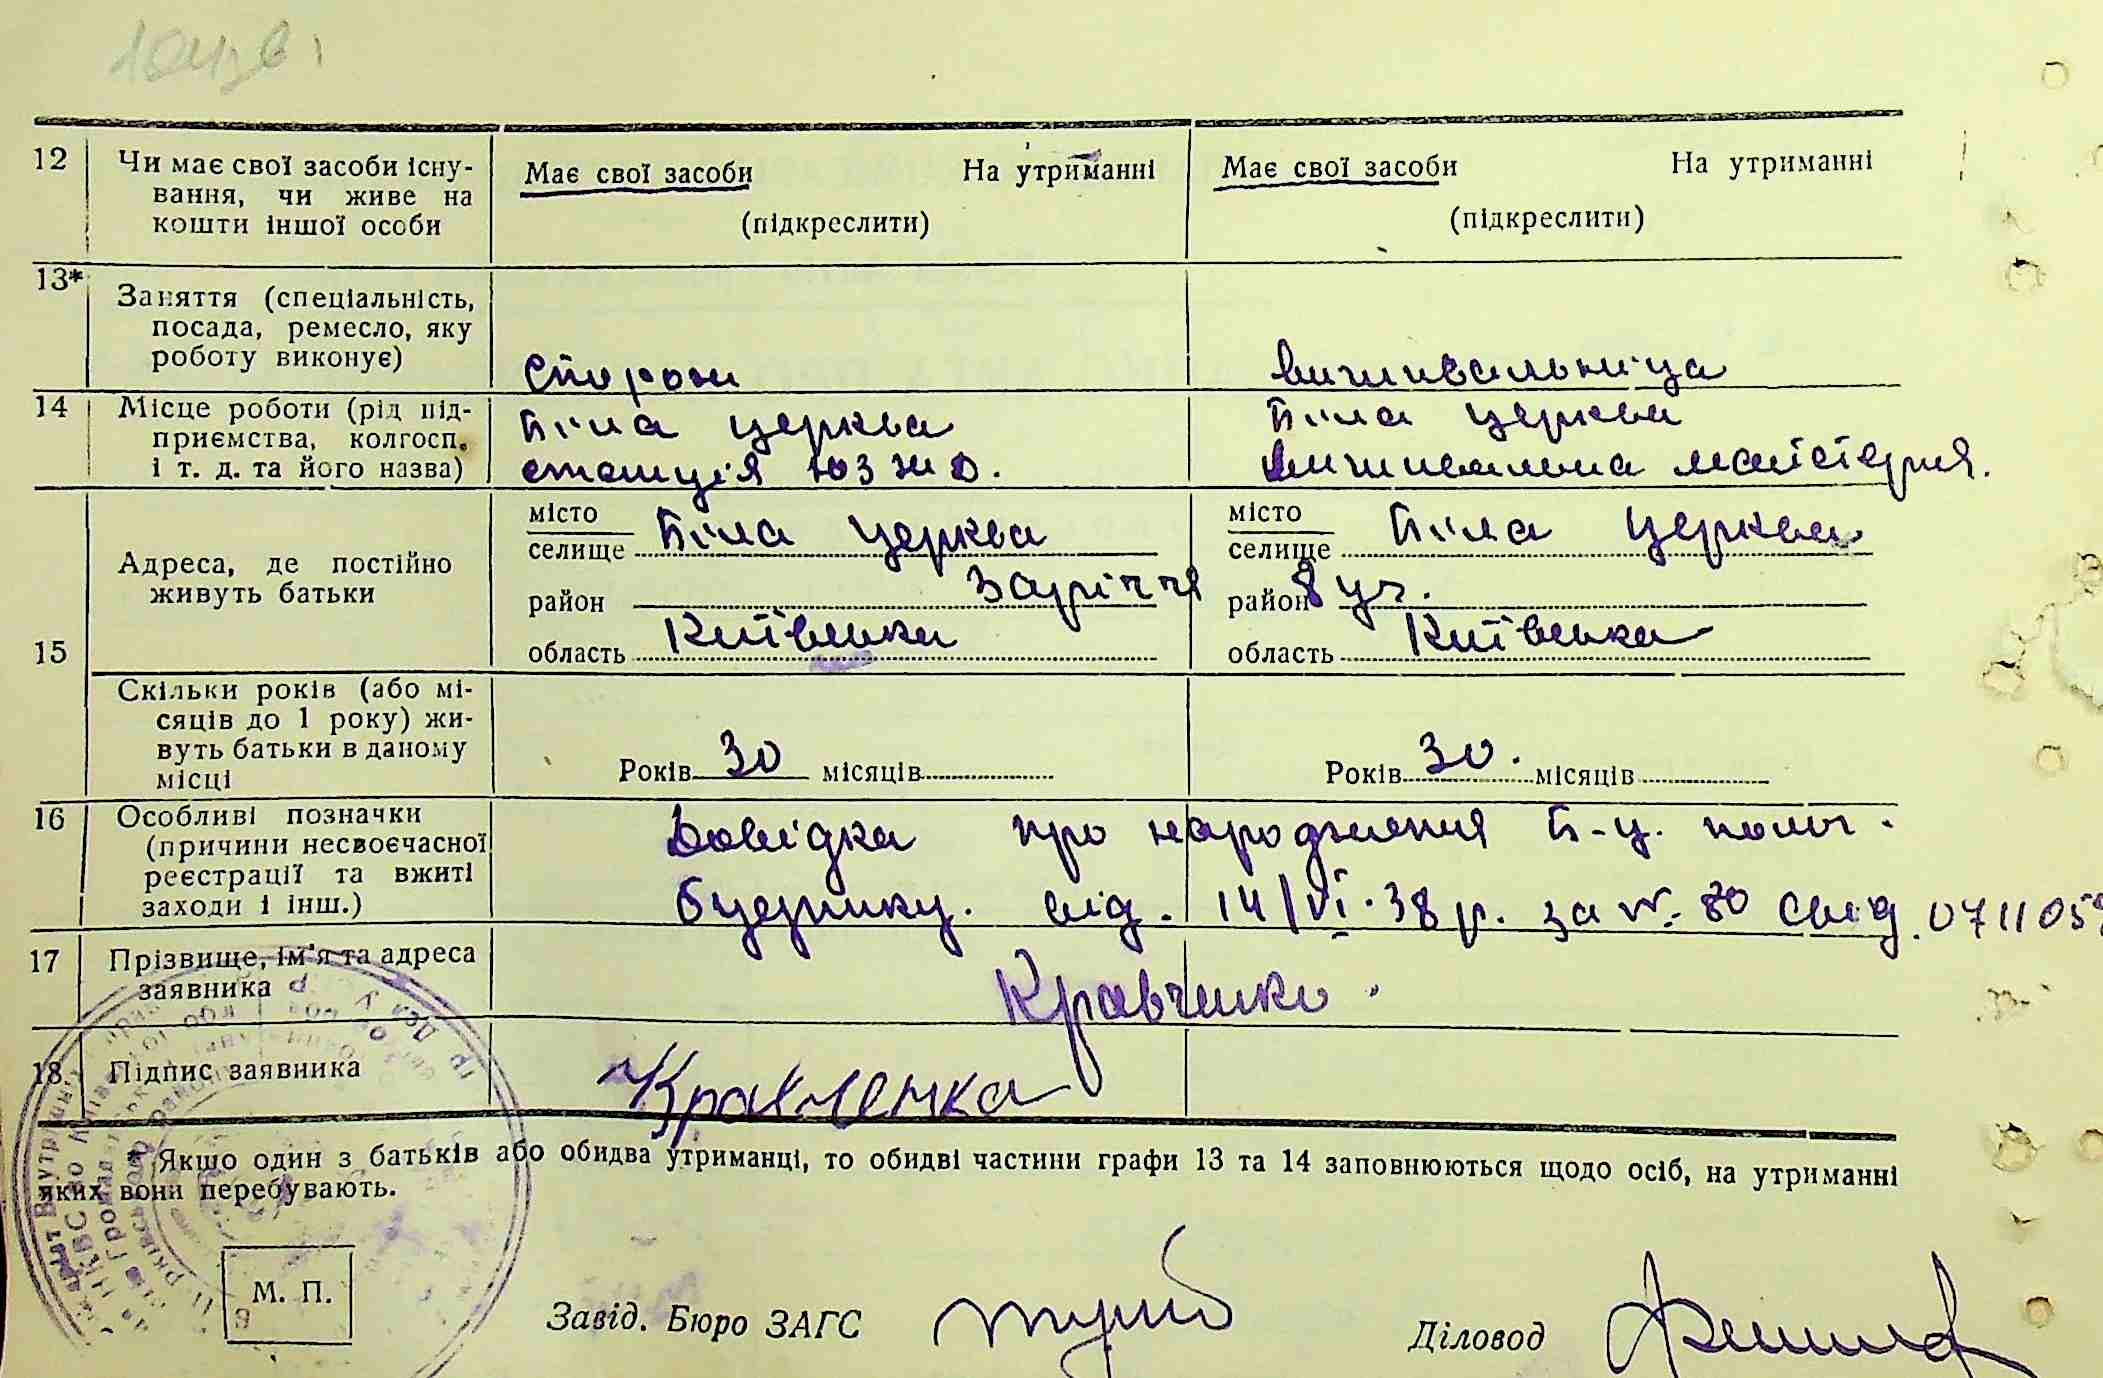 12
Чи має свої засоби існу-
вання, чи живе на
кошти іншої особи
Має свої засоби На утриманні
(підкреслити)
Має свої засоби На утриманні
(підкреслити)
13*
Заняття (спеціальність,
посада, ремесло, яку
роботу виконує)
Сторож
Вишивальниця
14
Місце роботи (рід під-
приємства, колгосп.
і т. д. та його назва)
Біла церква
станція ЮЗЖД.
Біла церква
Вишивальна майстерня.
15
Адреса, де постійно
живуть батьки
місто
селище Біла церква
район Заріччя
область Київська
місто
селище Біла церква
район 8 уч.
область Київська
Скільки років (або мі-
сяців до 1 року) жи-
вуть батьки в даному
місці
Років 30 місяців
Років 30. місяців
16
Особливі позначки
(причини несвоєчасної
реєстрації та вжиті
заходи і інш.)
Довідка про народження Б-Ц. полог.
будинку. від. 14/VI.38 р. за №. 80 Свід. 071105
17
Прізвище, ім'я та адреса
заявника
Кравченко.
18.
Підпис заявника
Кравченка
* Якшо один з батьків або обидва утриманці, то обидві частини графи 13 та 14 заповнюються щодо осіб, на утриманні
яких вони перебувають.
М. П.
Завід. Бюро ЗАГС
Діловод